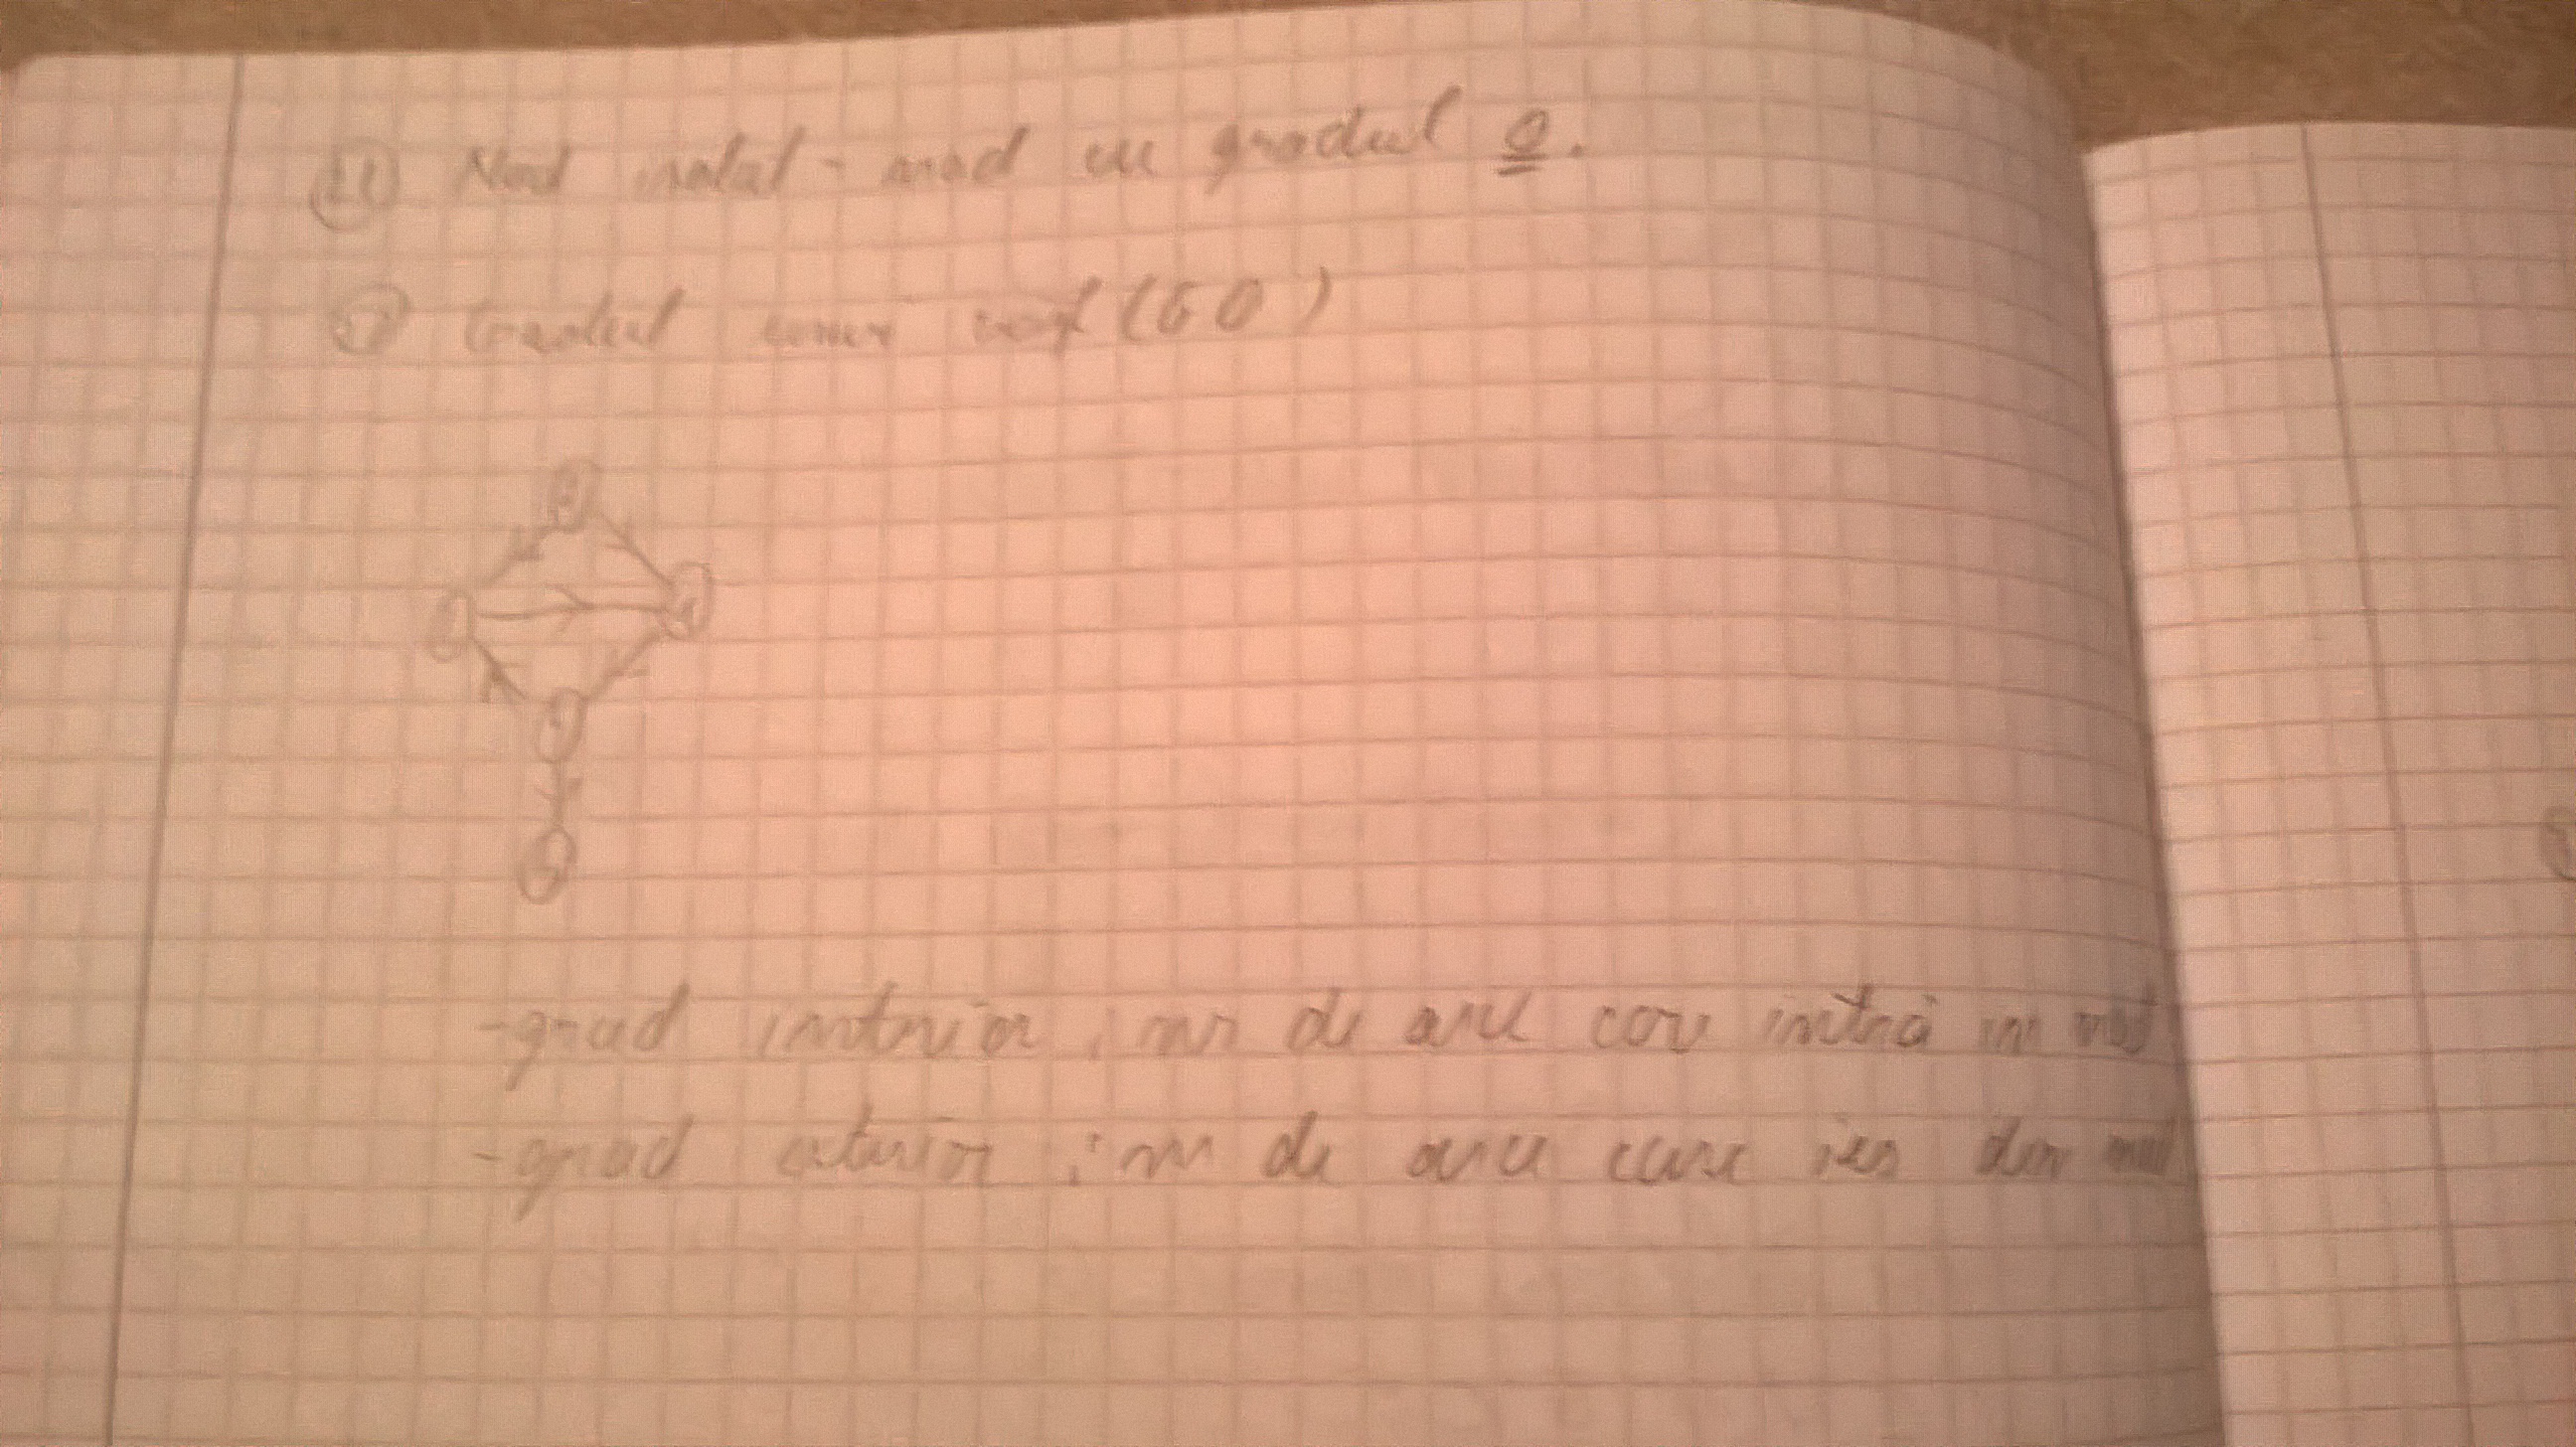 Nod izolat - nod cu gradul 0.
Gradul unui vârf (GO)
-grad interior : nr de arce care intră în nod
-grad exterior : nr de arce care ies din nod